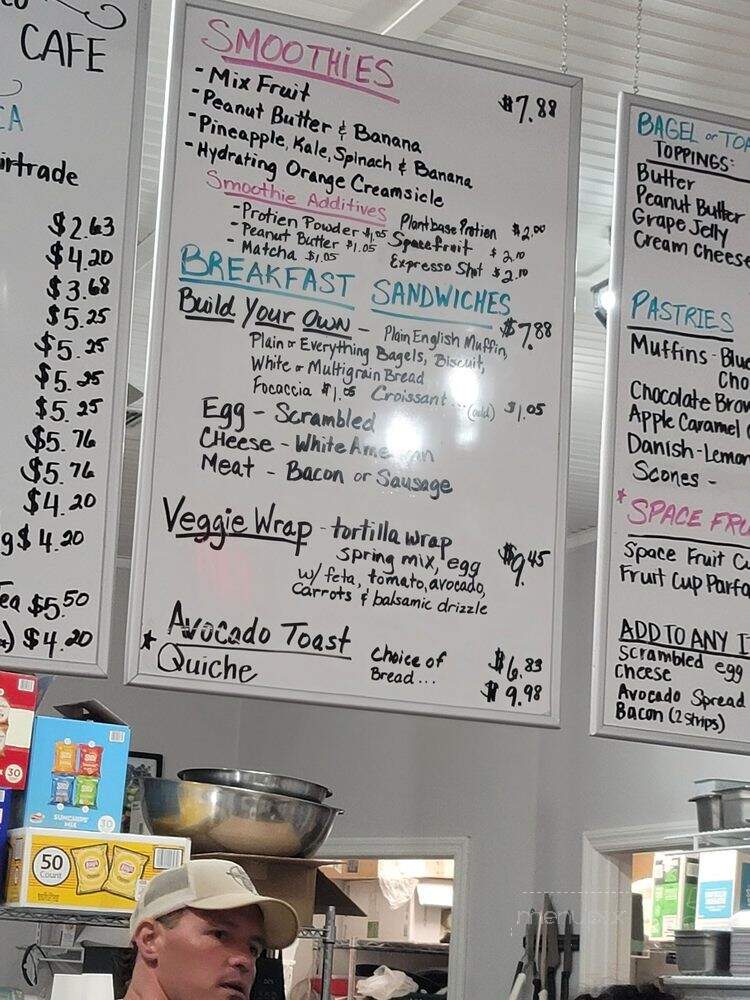 CAFE
irtrade
$2.63
$4.20
$3.68
$5.25
$5.25
$5.25
$5.25
$5.76
$5.76
$4.20
g $4.20
ea $5.50
) $4.20
SMOOTHiES
- Mix Fruit $7.88
- Peanut Butter & Banana
- Pineapple, Kale, Spinach & Banana
- Hydrating Orange Creamsicle
Smoothie Additives
- Protien Powder $1.05 Plantbase Protien $2.00
- Peanut Butter $1.05 Spacefruit $2.10
- Matcha $1.05 Expresso Shot $2.10
BREAKFAST SANDWICHES
Build Your Own - Plain English Muffin, $7.88
Plain or Everything Bagels, Biscuit,
White or Multigrain Bread
Focaccia $1.05 Croissant... (add) $1.05
Egg - Scrambled
CHeese - White American
Meat - Bacon or Sausage
Veggie Wrap - tortilla wrap
spring mix, egg $9.45
w/ feta, tomato, avocado,
Carrots & balsamic drizzle
Avocado Toast Choice of Bread... $6.83
* Quiche $9.98
BAGEL or TOA
TOPPINGS:
Butter
Peanut Butter
Grape Jelly
Cream Cheese
PASTRIES
Muffins - Blue
Cho
Chocolate Brow
Apple Caramel
Danish - Lemon
Scones -
* SPACE FRU
Space Fruit Cu
Fruit Cup Parfa
ADD TO ANY I
Scrambled egg
Cheese
Avocado Spread
Bacon (2 Strips)
30
SUNCHIPS
MIX
30
50
Count
Lay's
Lay's
menupix